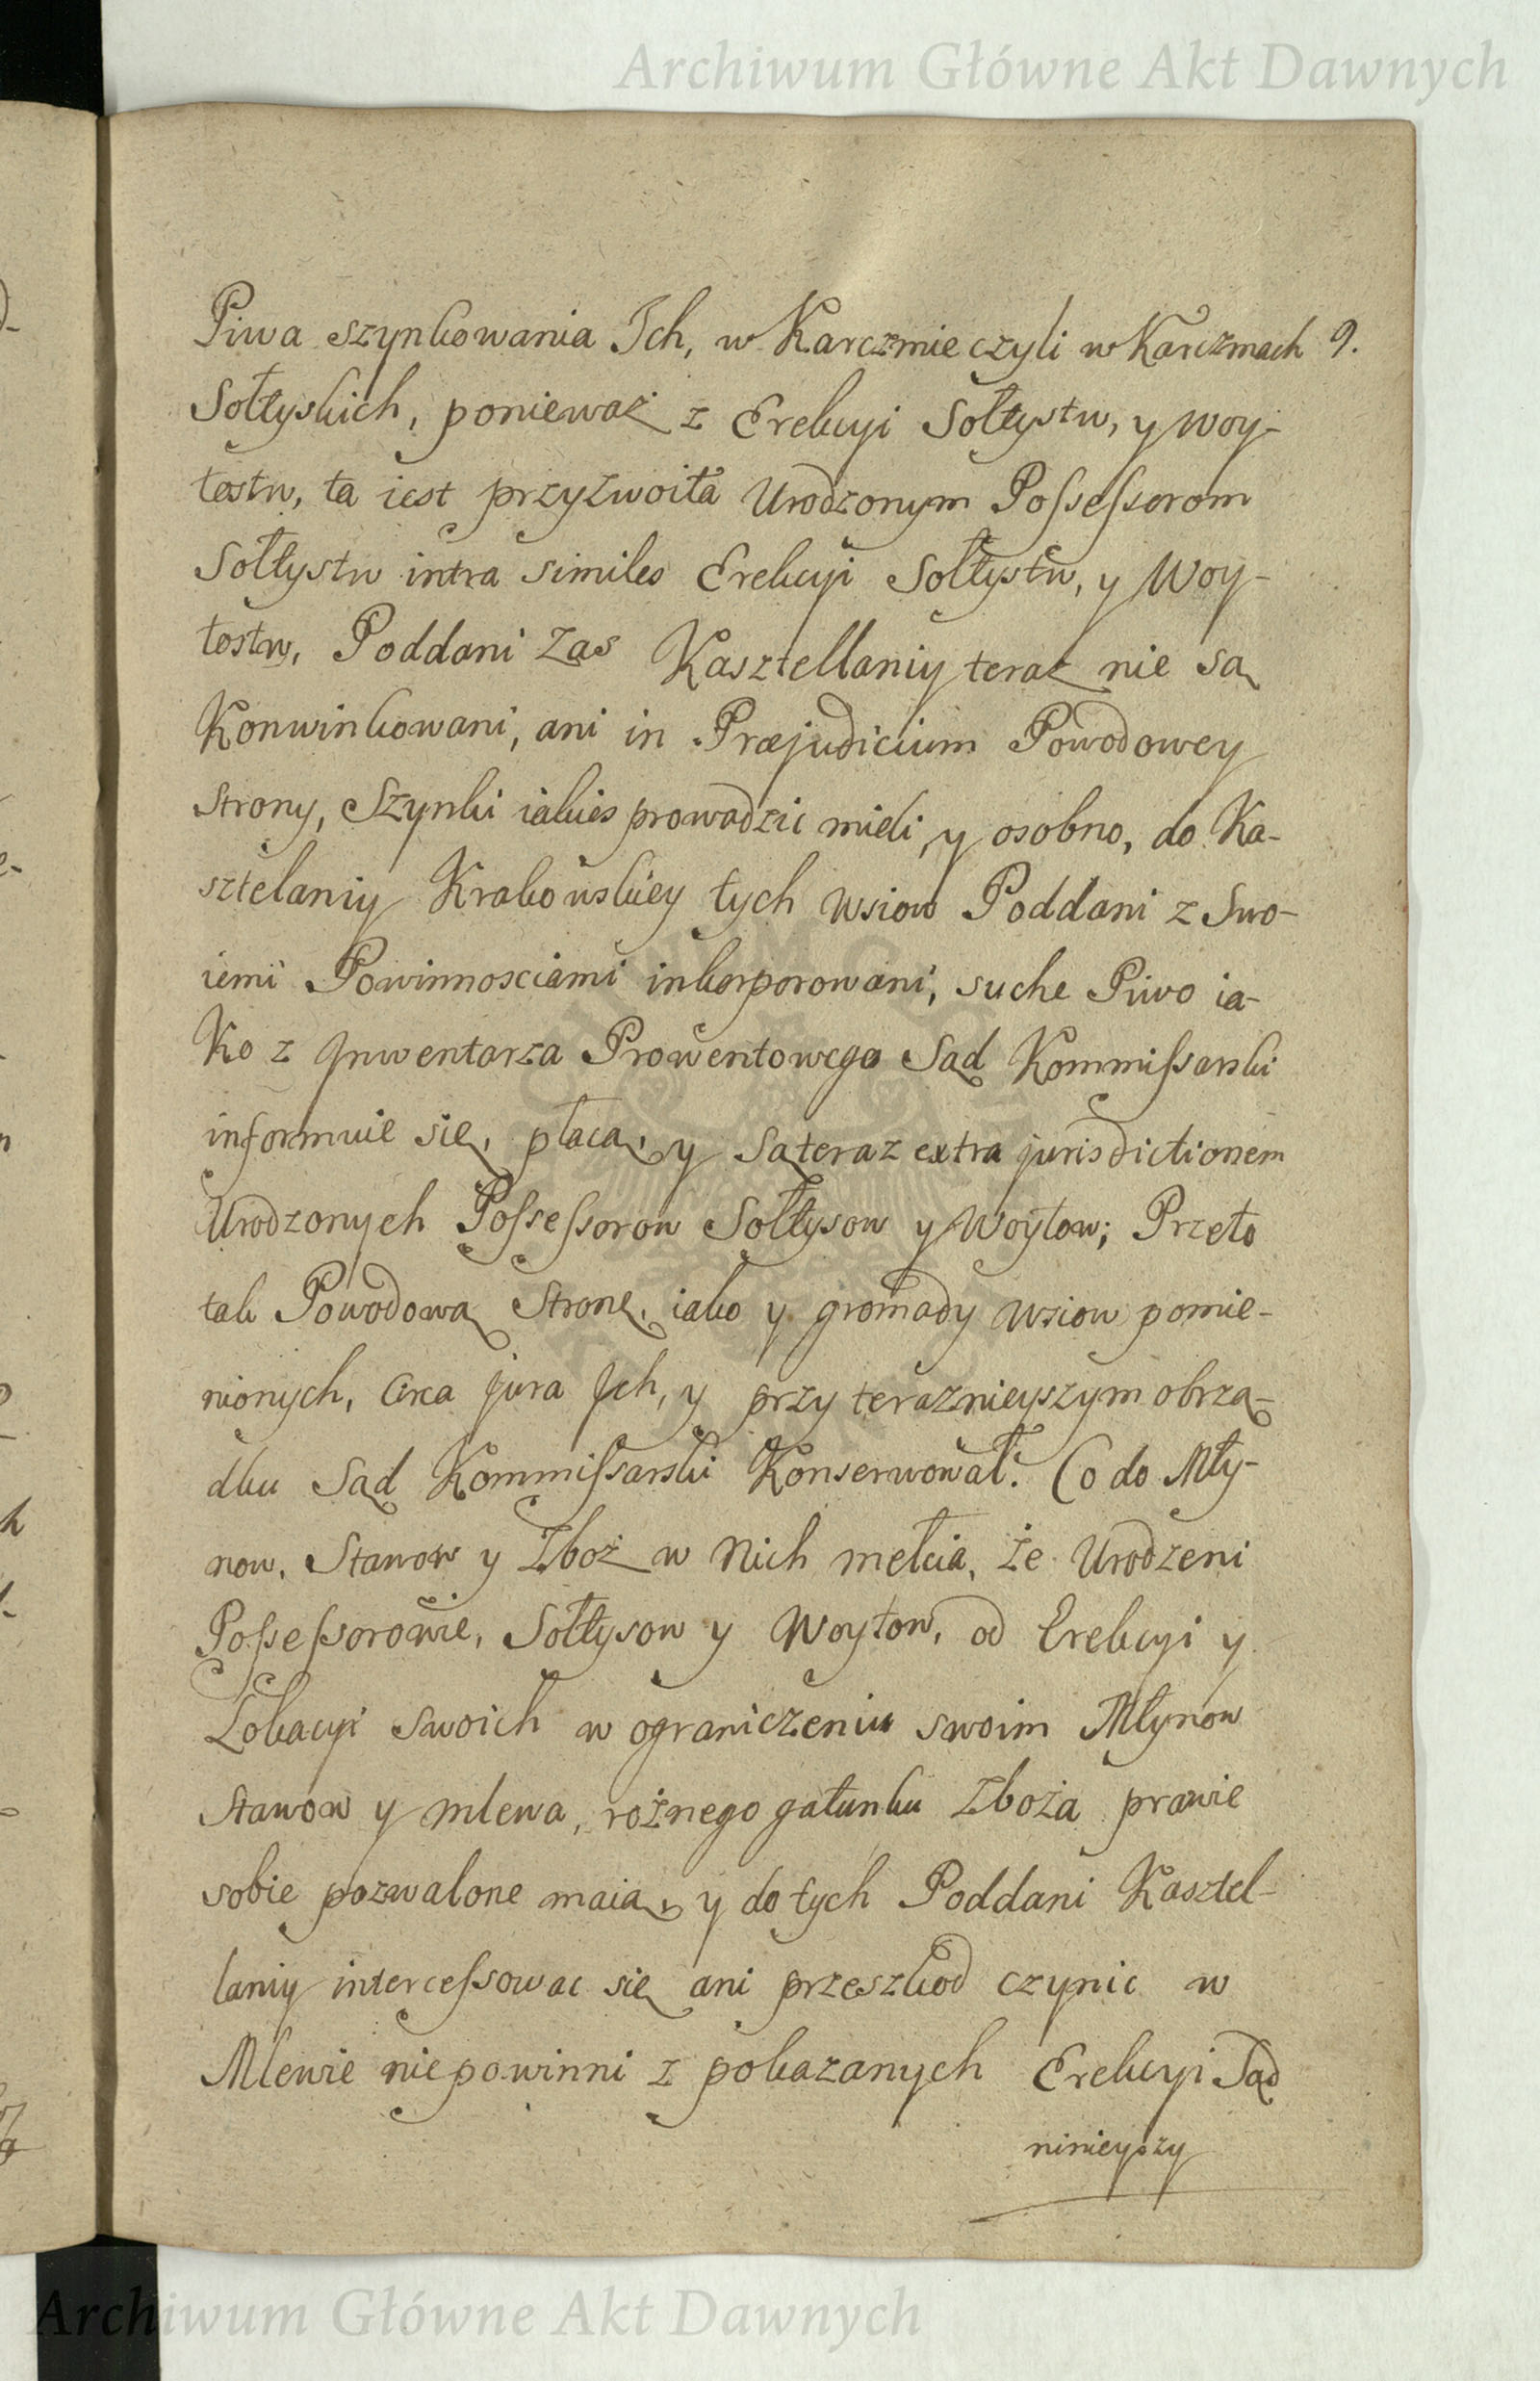 Archiwum Główne Akt Dawnych
Piwa szynkowania Ich, w Karczmie czyli w Karczmach 9.
Sołtyskich, ponieważ z Erekcyi Sołtystw, y woy-
tostw, ta iest przyzwoita Urodzonym Possessorom
Sołtystw intra similes Erekcyi Sołtystw, y Woy-
tostw, Poddani Zas Kasztellaniy teraz nie są
Konwinkowani, ani in Præjudicium Powodowey
Strony, Szynki iakies prowadzic mieli, y osobno, do Ka-
sztelaniy Krakowskiey tych wsiow Poddani z Swo-
iemi Powinnosciami inkorporowani, suche Piwo ia-
Ko z Inwentarza Prowentowego Sąd Kommissarski
informuie się, płacą, y Są teraz extra jurisdictionem
Urodzonych Possessorow Sołtysow y Woytow; Przeto
tak Powodową Stronę, iako y gromady wsiow pomie-
nionych, Circa jura Ich, y przy teraznieyszym obrzą-
dku Sąd Kommissarski Konserwował. Co do Mły-
now, Stawow y Zboż w Nich melcia, że Urodzeni
Possessorowie, Sołtysow y Woytow, od Erekcyi y
Lokacyi swoich w ograniczeniu swoim Młynow
Stawow y mlewa, rożnego gatunku Zboża prawie
sobie pozwalone maią, y do tych Poddani Kasztel-
laniy intercessowac się ani przeszkod czynic w
Mlewie nie powinni z pokazanych Erekcyi Sąd
ninieyszy
Archiwum Główne Akt Dawnych